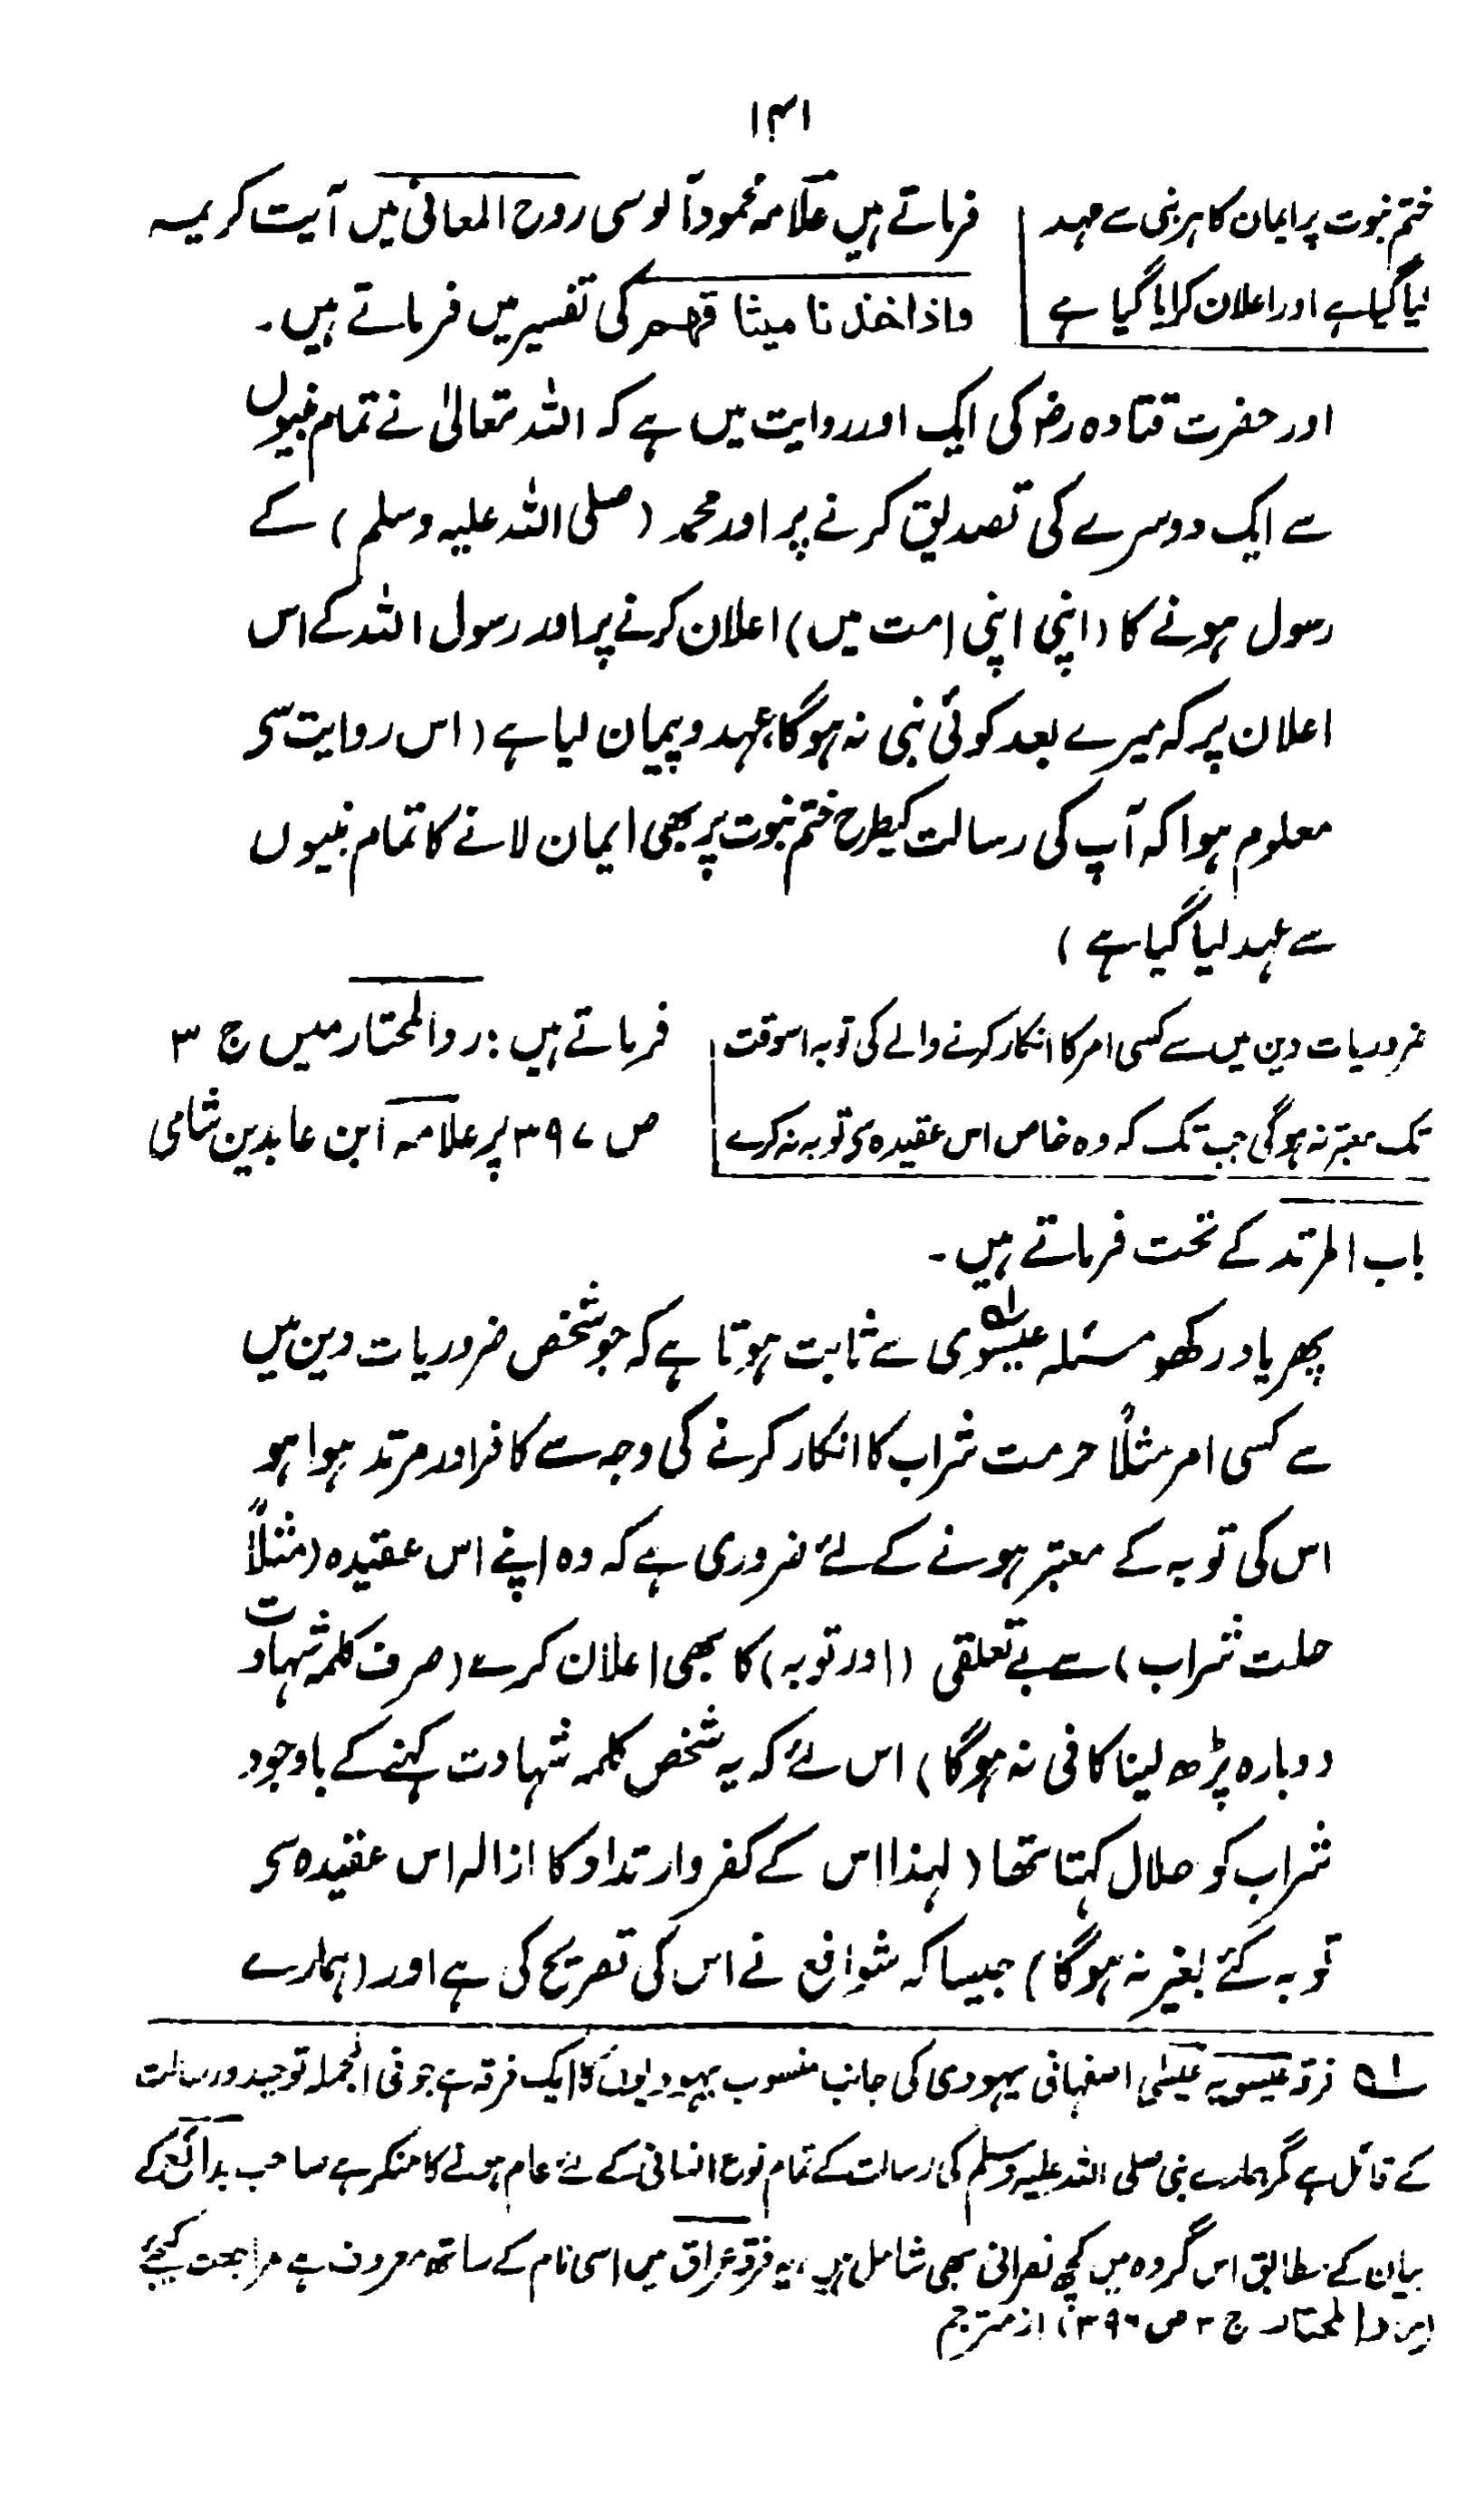 ۱۴۱
ختم نبوت پر ایمان کا ہر نبی سے عہد
لیا گیا ہے اور اعلان کرایا گیا ہے
فرماتے ہیں علامہ محمود آلوسی روح المعانی میں آیت کریمہ
واذ اخذنا میثاقھم کی تفسیر میں فرماتے ہیں۔
اور حضرت قتادہ رض کی ایک اور روایت میں ہے کہ اللہ تعالیٰ نے تمام نبیوں
سے ایک دوسرے کی تصدیق کرنے پر اور محمد (صلی اللہ علیہ وسلم) کے
رسول ہونے کا (اپنی اپنی امت میں) اعلان کرنے پر اور رسول اللہ کے اس
اعلان پر کہ میرے بعد کوئی نبی نہ ہوگا، عہد و پیمان لیا ہے (اس روایت سے
معلوم ہوا کہ آپ کی رسالت کیطرح ختم نبوت پر بھی ایمان لانے کا تمام نبیوں
سے عہد لیا گیا ہے)
ضروریات دین میں سے کسی امر کا انکار کرنے والے کی توبہ اسوقت
تک معتبر نہ ہوگی جب تک کہ وہ خاص اس عقیدہ سے توبہ نہ کرے
فرماتے ہیں: ردالمحتار میں ج ۳
ص ۳۹۷ پر علامہ ابن عابدین شامی
باب المرتد کے تحت فرماتے ہیں۔
پھر یاد رکھو مسئلہ عیسوی لہ سے ثابت ہوتا ہے کہ جو شخص ضروریات دین میں
سے کسی امر مثلاً حرمت شراب کا انکار کرنے کی وجہ سے کافر اور مرتد ہوا ہو
اس کی توبہ کے معتبر ہونے کے لئے ضروری ہے کہ وہ اپنے اس عقیدہ (مثلاً
حلت شراب) سے بے تعلقی (اور توبہ) کا بھی اعلان کرے (صرف کلمہ شہادت
دوبارہ پڑھ لینا کافی نہ ہوگا) اس لئے کہ یہ شخص کلمہ شہادت کہنے کے باوجود
شراب کو حلال کہتا تھا (لہذا اس کے کفر و ارتداد کا ازالہ اس عقیدہ سے
توبہ کئے بغیر نہ ہوگا) جیسا کہ شوافع نے اس کی تصریح کی ہے اور (ہمارے
لہ فرقہ عیسویہ عیسٰی اصفہانی یہودی کی جانب منسوب یہودیوں کا ایک فرقہ ہے جو فی الجملہ توحید و رسالت
کے قائل ہے مگر ہمارے نبی صلی اللہ علیہ وسلم کی رسالت کے تمام نوع انسانی کے لئے عام ہونے کا منکر ہے صاحب بدائع کے
بیان کے مطابق اس گروہ میں کچھ نصرانی بھی شامل ہیں، یہ فرقہ عراق میں اسی نام کے ساتھ معروف ہے مراجعت کیجئے
ردالمحتار ج ۳ ص ۳۹۶، از مترجم